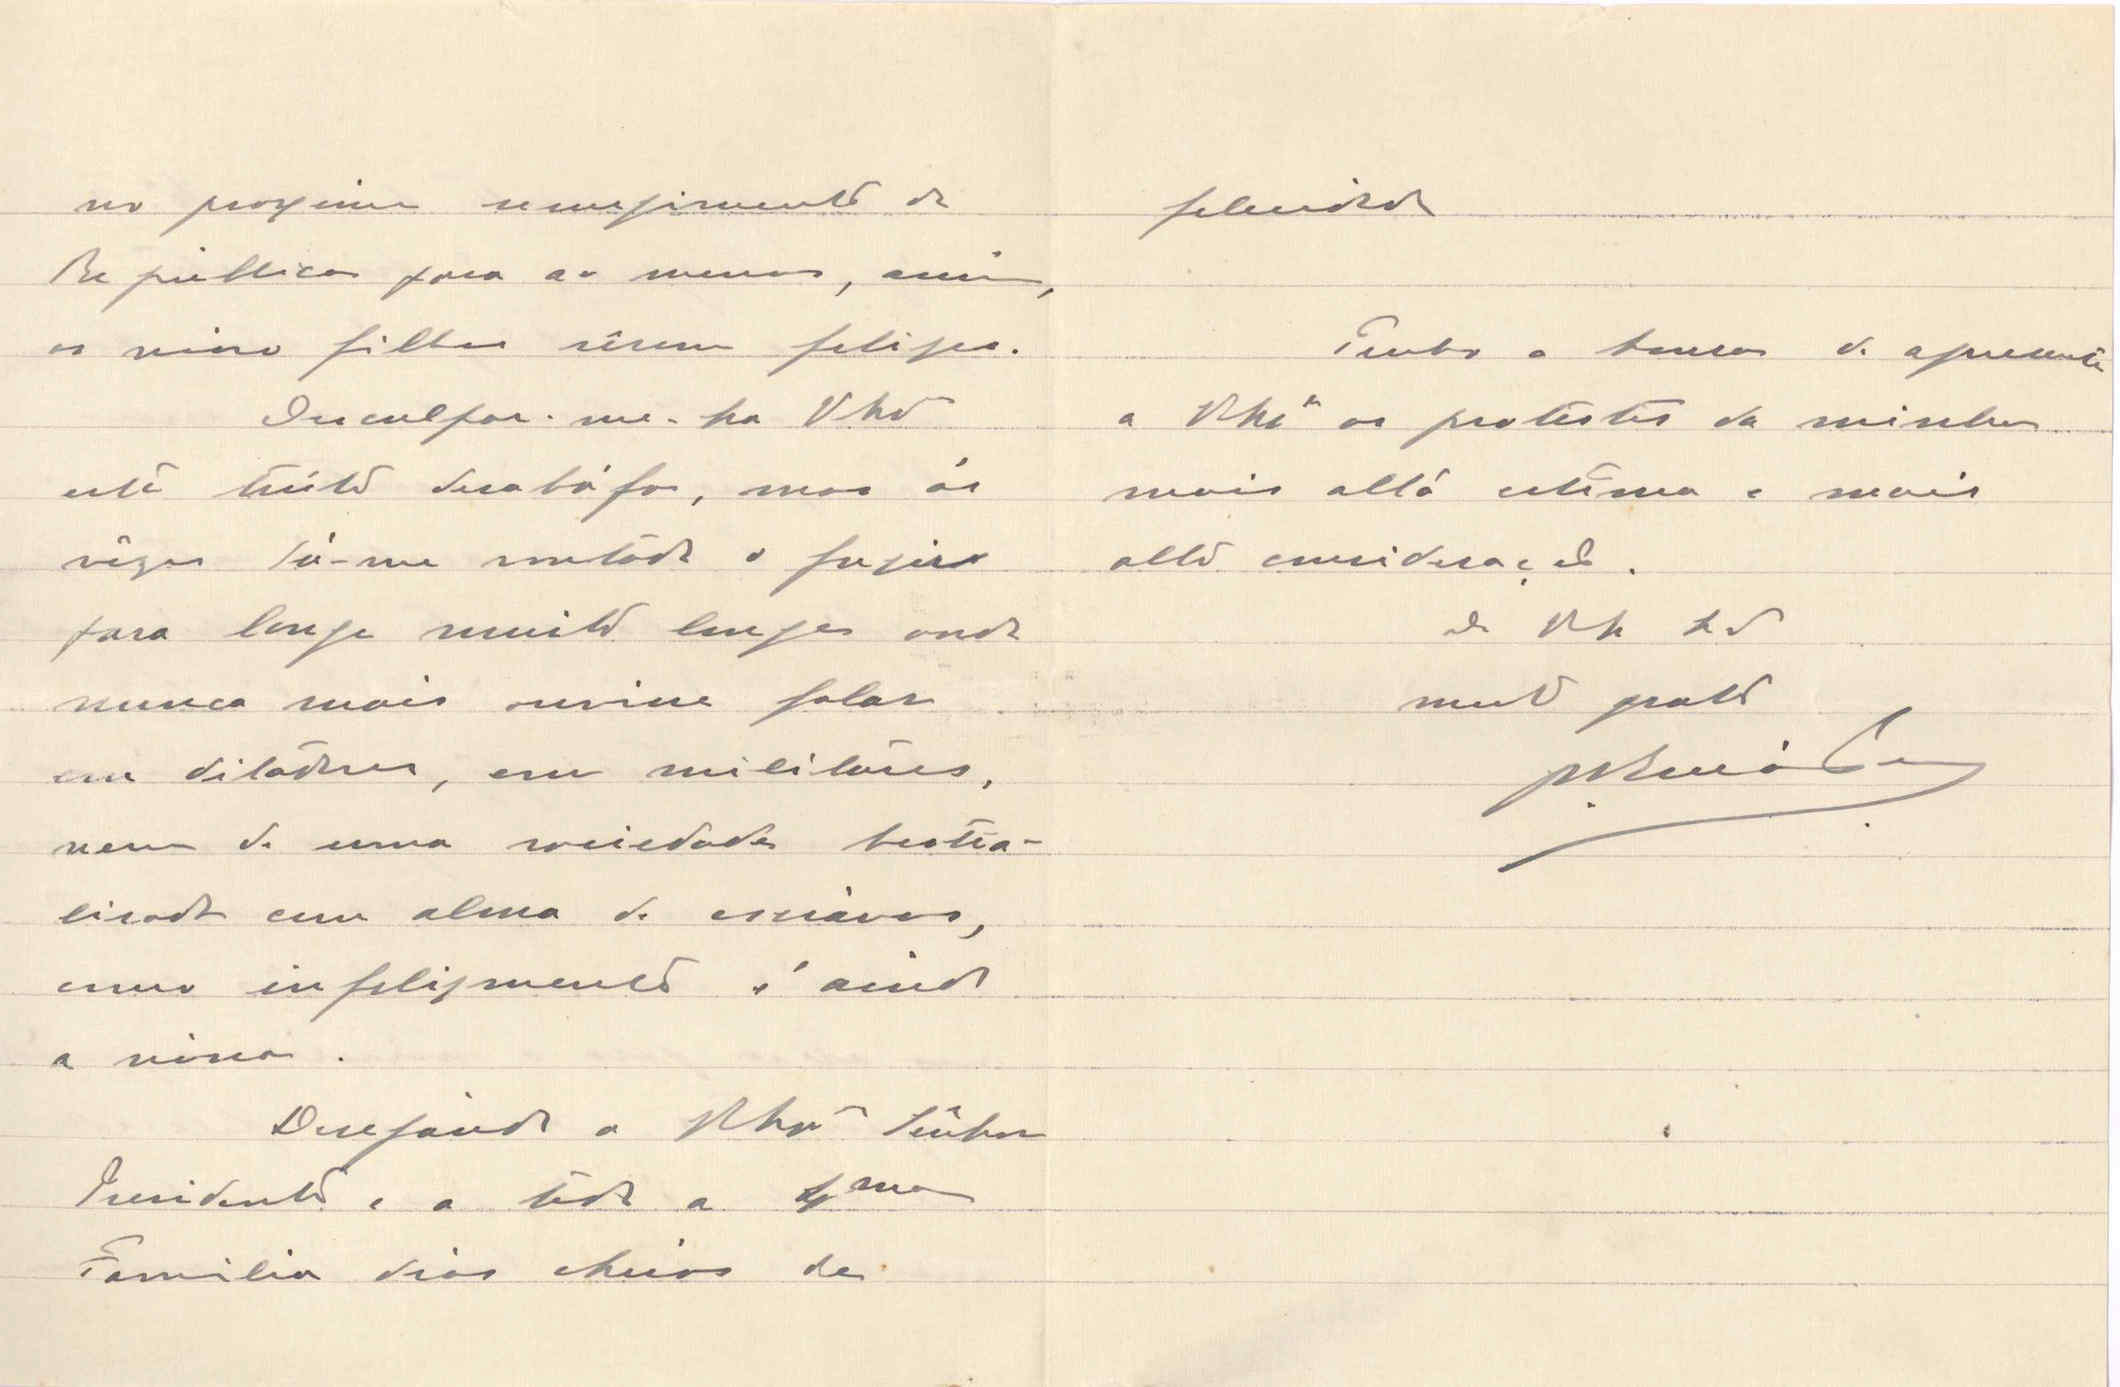 no proximo resurgimento da
Republica para ao menos, assim,
os nossos filhos sêrem felizes.
Desculpar-me-ha V. Exª
este triste desabáfo, mas ás
vêzes dá-me vontade de fugir
para longe muito longe onde
nunca mais ouvisse falar
em ditadores, em militares,
nem de uma sociedade bestia-
lisada com alma de escrávos,
como infelizmente é ainda
a nossa.
Desejando a V. Exª Senhor
Presidente e a toda a Exma
Familia dias cheios de
felicidade
Tenho a honra de apresentar
a V. Exª os protestos da minha
mais alta estima e mais
alta consideração.
De V. Exª
muito grato